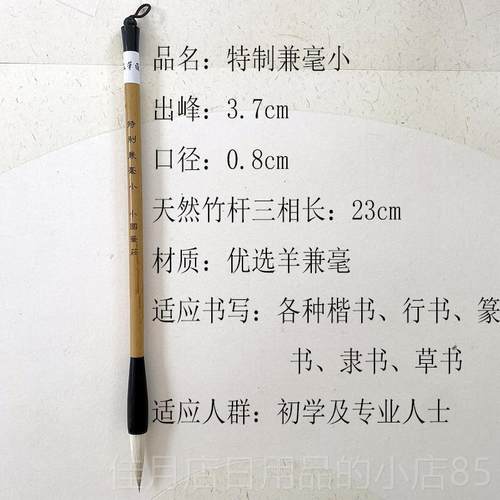 品名：特制兼毫小
出峰：3.7cm
口径：0.8cm
天然竹杆三相长：23cm
材质：优选羊兼毫
适应书写：各种楷书、行书、篆
书、隶书、草书
适应人群：初学及专业人士
特制兼毫小
佳月店日用品的小店85